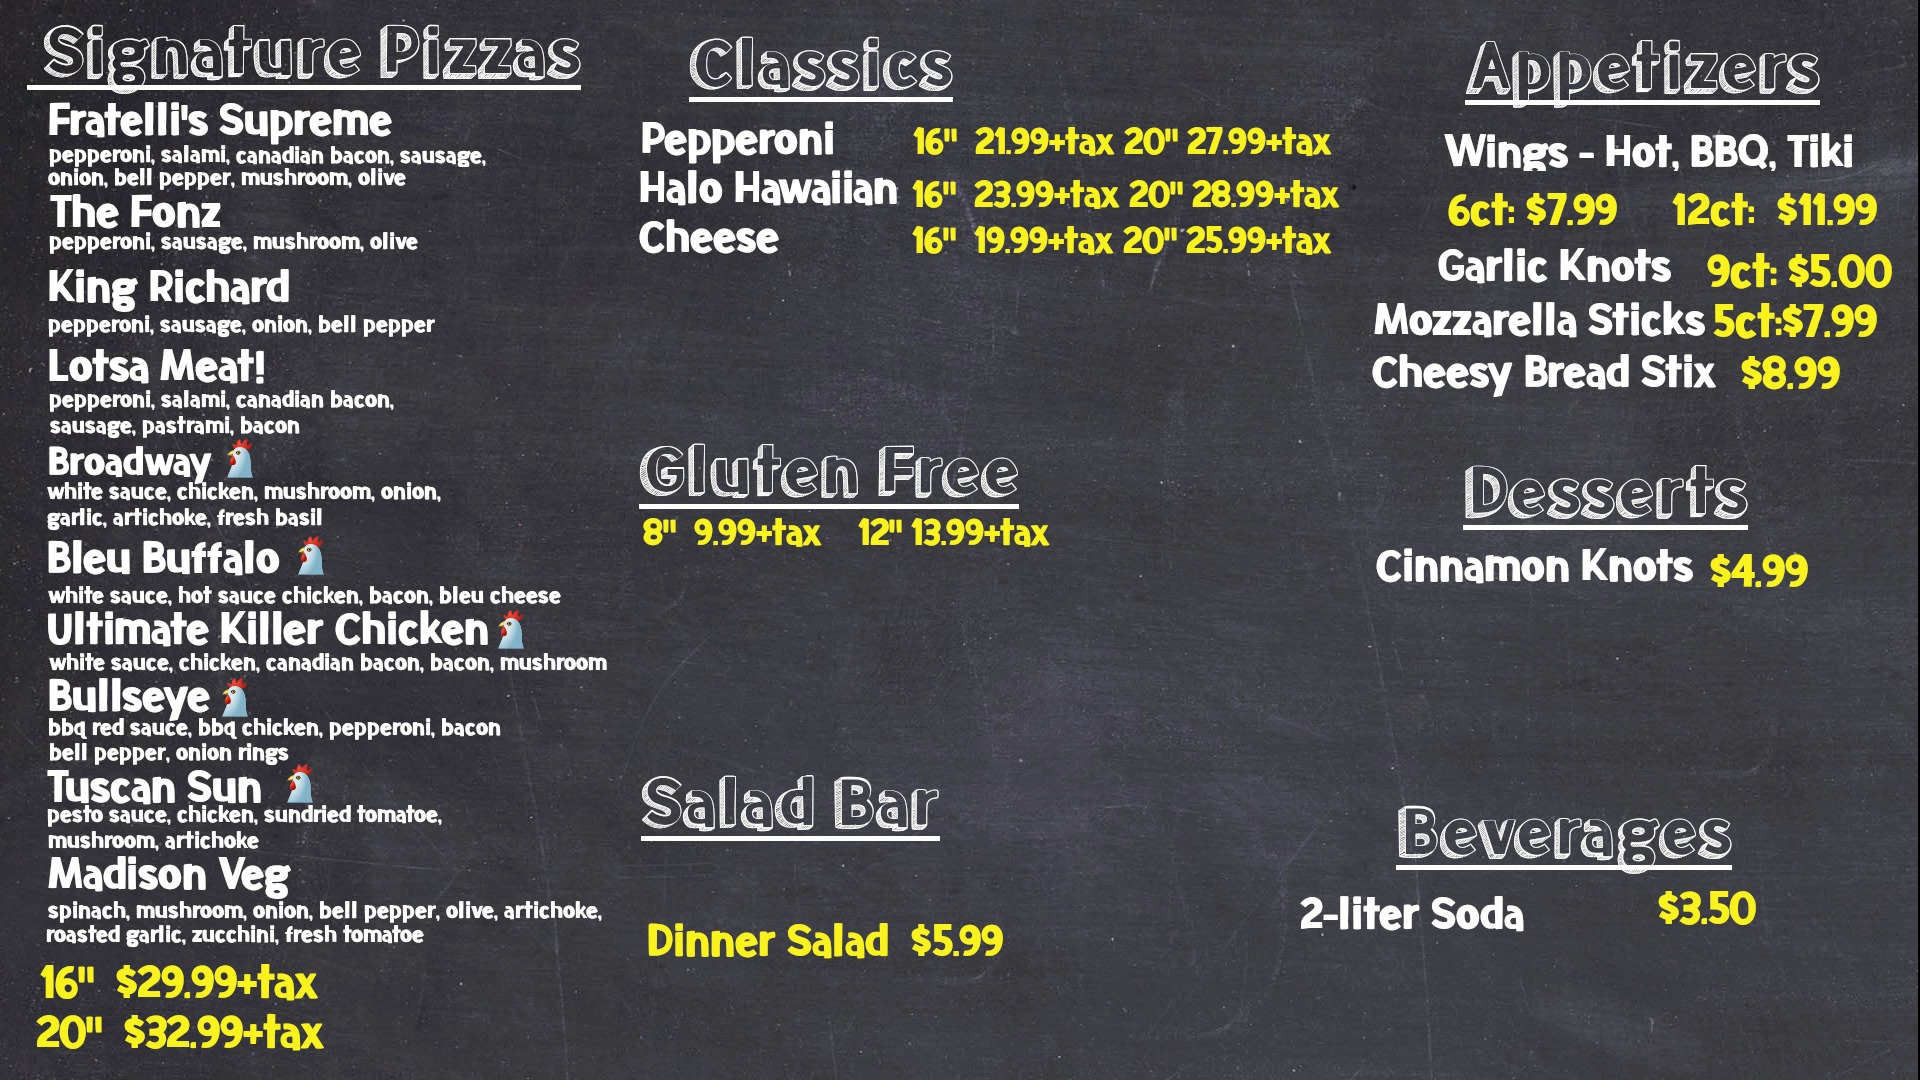 Signature Pizzas
Fratelli's Supreme
pepperoni, salami, canadian bacon, sausage,
onion, bell pepper, mushroom, olive
The Fonz
pepperoni, sausage, mushroom, olive
King Richard
pepperoni, sausage, onion, bell pepper
Lotsa Meat!
pepperoni, salami, canadian bacon,
sausage, pastrami, bacon
Broadway
white sauce, chicken, mushroom, onion,
garlic, artichoke, fresh basil
Bleu Buffalo
white sauce, hot sauce chicken, bacon, bleu cheese
Ultimate Killer Chicken
white sauce, chicken, canadian bacon, bacon, mushroom
Bullseye
bbq red sauce, bbq chicken, pepperoni, bacon
bell pepper, onion rings
Tuscan Sun
pesto sauce, chicken, sundried tomatoe,
mushroom, artichoke
Madison Veg
spinach, mushroom, onion, bell pepper, olive, artichoke,
roasted garlic, zucchini, fresh tomatoe
16" $29.99+tax
20" $32.99+tax
Classics
Pepperoni 16" 21.99+tax 20" 27.99+tax
Halo Hawaiian 16" 23.99+tax 20" 28.99+tax
Cheese 16" 19.99+tax 20" 25.99+tax
Gluten Free
8" 9.99+tax 12" 13.99+tax
Salad Bar
Dinner Salad $5.99
Appetizers
Wings - Hot, BBQ, Tiki
6ct: $7.99 12ct: $11.99
Garlic Knots 9ct: $5.00
Mozzarella Sticks 5ct:$7.99
Cheesy Bread Stix $8.99
Desserts
Cinnamon Knots $4.99
Beverages
2-liter Soda $3.50